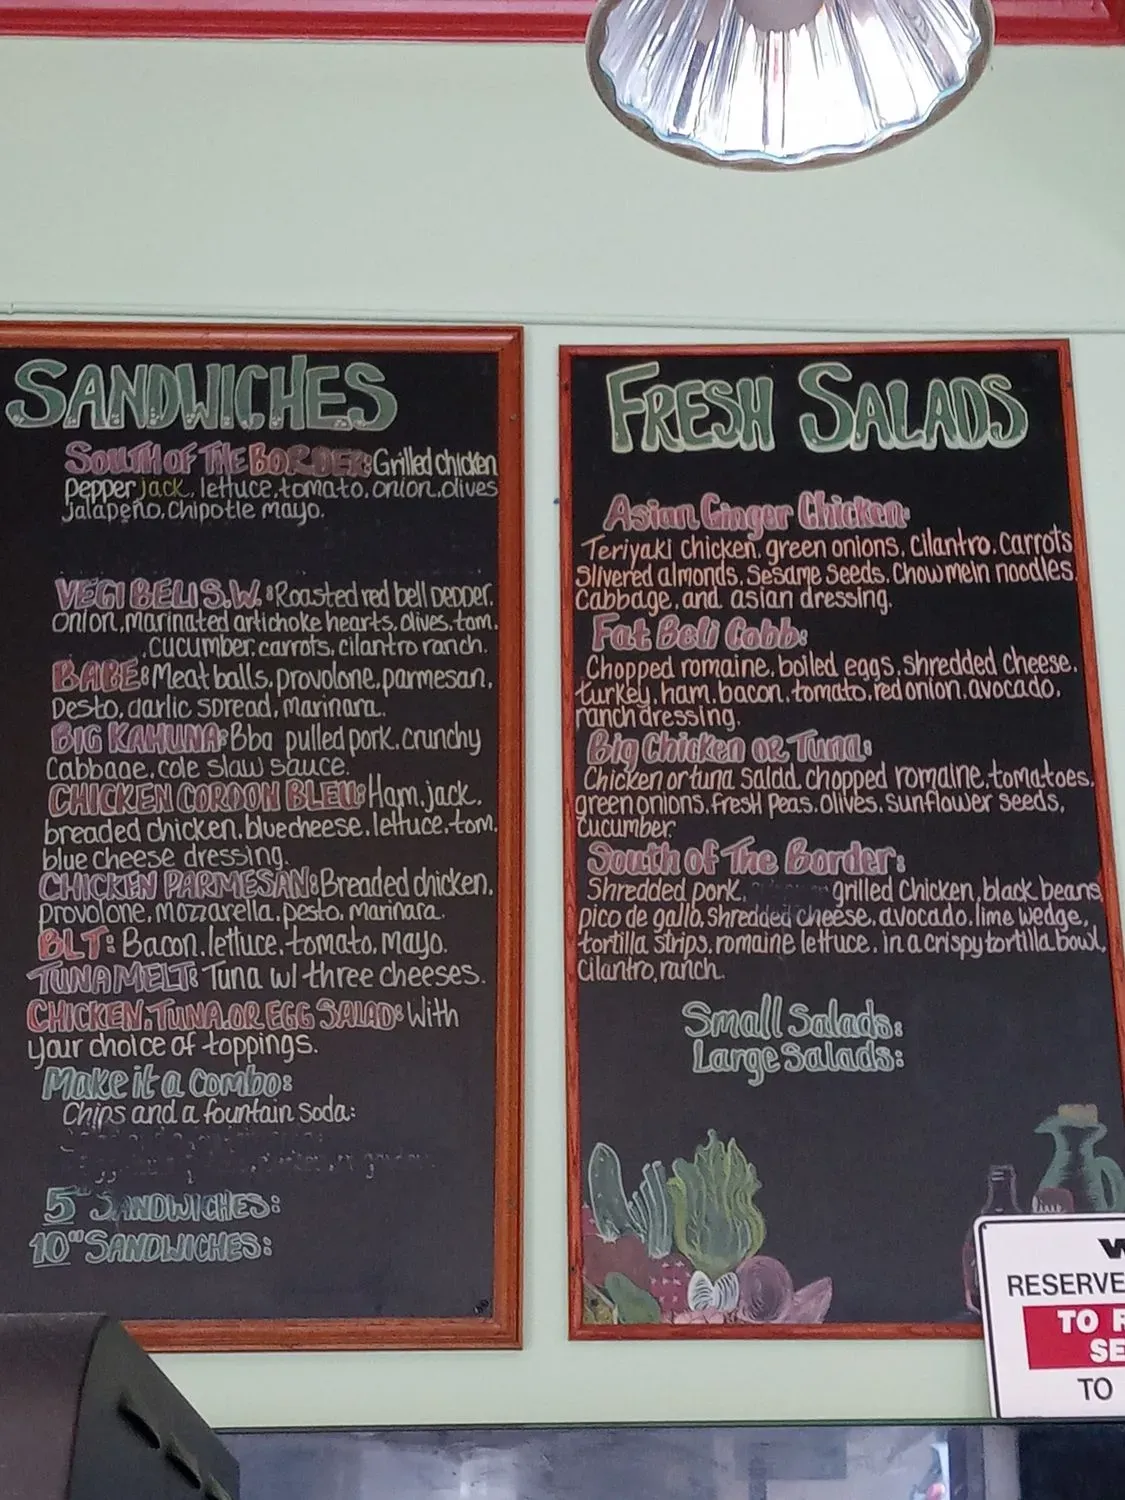 SANDWICHES
SOUTH OF THE BORDER: Grilled chicken
pepper jack, lettuce, tomato, onion, olives
jalapeño, Chipotle mayo.
VEGI BELI S.W.: Roasted red bell pepper,
onion, marinated artichoke hearts, olives, tom.
, cucumber, carrots, cilantro ranch.
BABE: Meat balls, provolone, parmesan,
pesto, garlic spread, marinara.
BIG KAHUNA: Bbq pulled pork, crunchy
Cabbage, cole slaw sauce.
CHICKEN CORDON BLEU: Ham, jack,
breaded chicken, bluecheese, lettuce, tom,
blue cheese dressing.
CHICKEN PARMESAN: Breaded chicken,
provolone, mozzarella, pesto, marinara.
BLT: Bacon, lettuce, tomato, mayo.
TUNA MELT: Tuna w/ three cheeses.
CHICKEN, TUNA, OR EGG SALAD: With
your choice of toppings.
Make it a Combo:
Chips and a fountain soda:
5" SANDWICHES:
10" SANDWICHES:
FRESH SALADS
Asian Ginger Chicken:
Teriyaki chicken, green onions, cilantro, carrots
Slivered almonds, Sesame Seeds, Chowmein noodles
Cabbage, and asian dressing.
Fat Beli Cobb:
Chopped romaine, boiled eggs, shredded cheese,
turkey, ham, bacon, tomato, red onion, avocado,
ranch dressing.
Big Chicken or Tuna:
Chicken or tuna salad, chopped romaine, tomatoes,
green onions, fresh Peas, olives, sunflower seeds,
cucumber.
South of The Border:
Shredded pork, grilled Chicken, black beans,
pico de gallo, shredded cheese, avocado, lime wedge,
tortilla strips, romaine lettuce, in a crispy tortilla bowl,
Cilantro, ranch.
Small Salads:
Large Salads:
RESERVE
TO
SE
TO